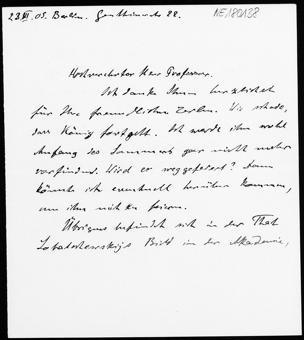 23.XI.05. Berlin. Genthinerstr 22.
AE180138
Hochverehrter Herr Professor.
Ich danke Ihnen herzlichst
für Ihre freundlichen Zeilen. Wie schade,
dass König fortgeht. Ich werde ihn wohl
Anfang des Sommers gar nicht mehr
vorfinden. Wird er weggefeiert? Dann
könnte ich eventuell herüber kommen,
um ihn mit zu feiern.
Übrigens befindet sich in der That
Lobatschewskijs Bild in der Akademie,